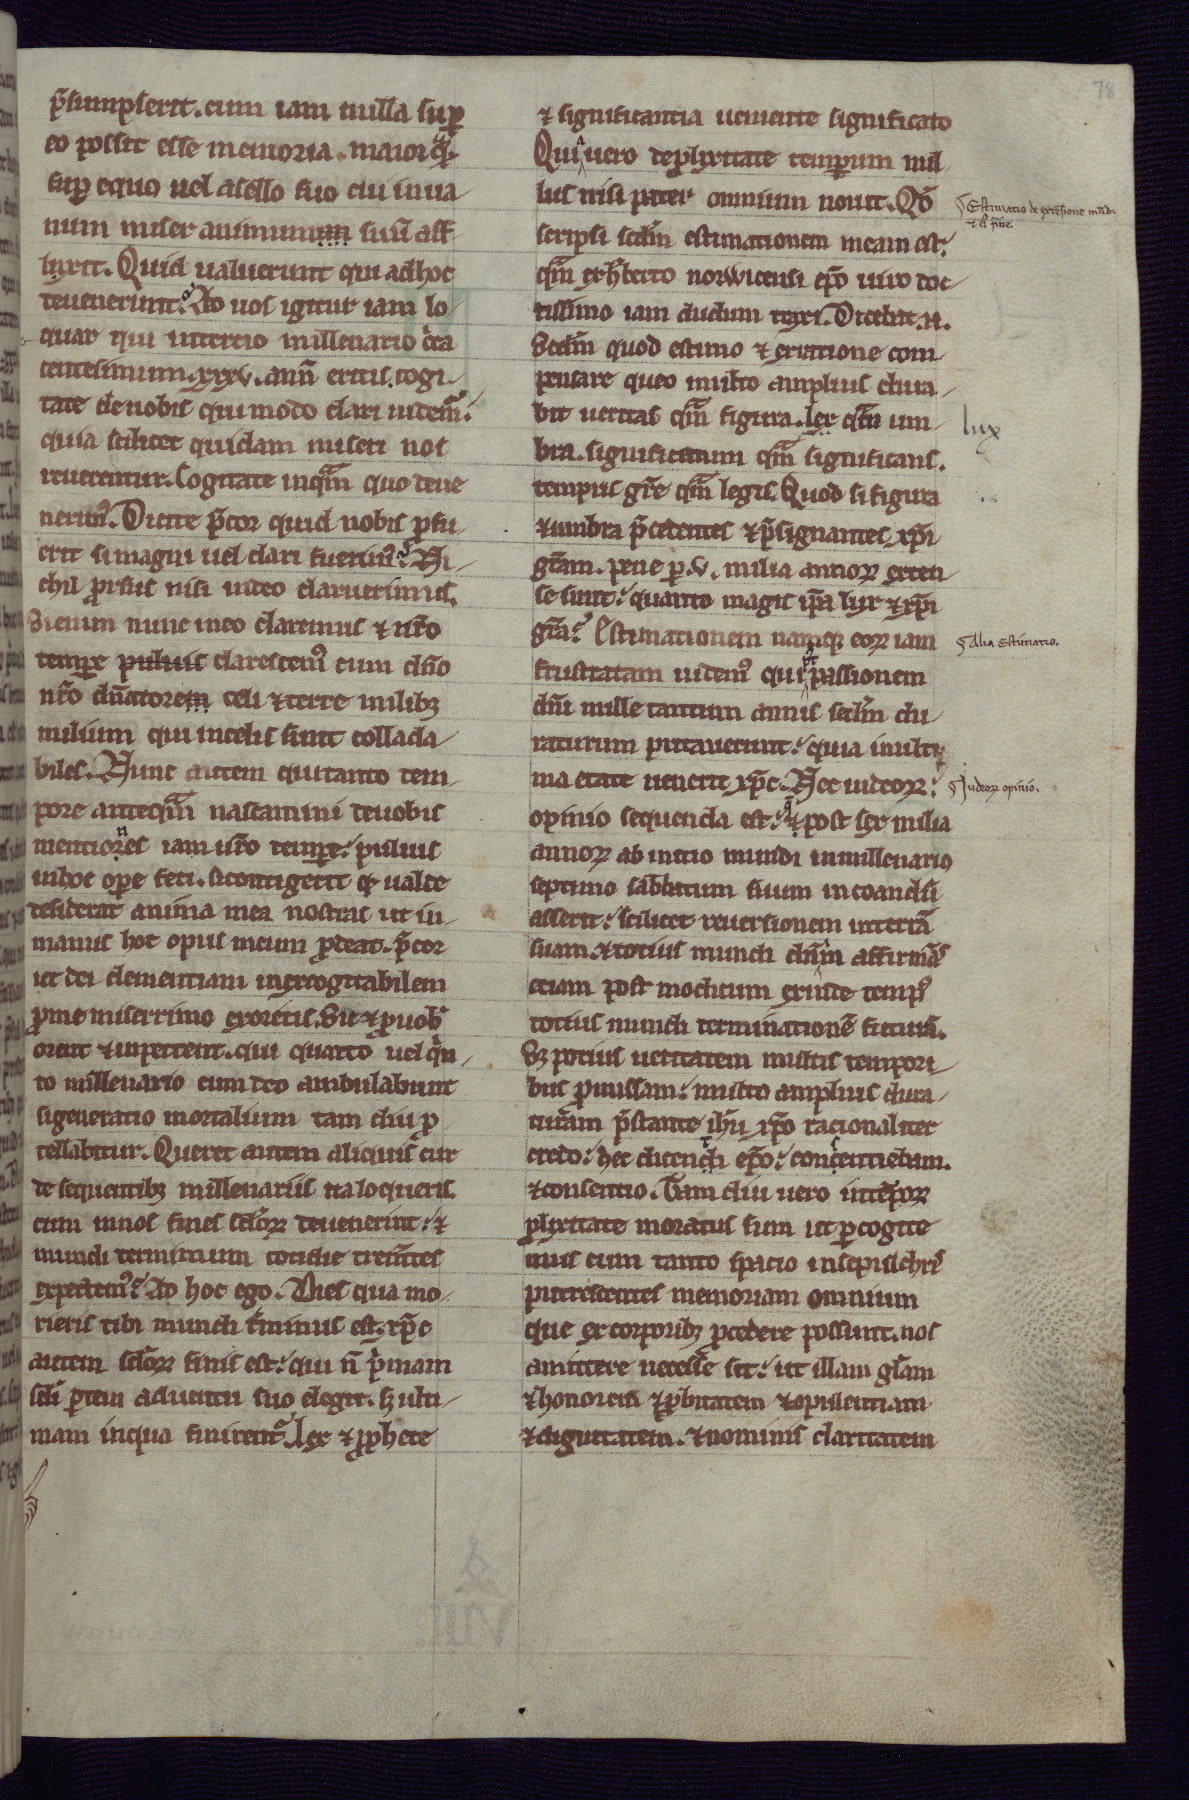 p̄sumpserit. cum iam nulla sup̱
eo possit esse memoria. maior q̄ꝫ
sup̱ equo uel asello suo cui inua
num miser animumum suū aff
lixit. Quid ualuerunt qui ad hoc
deuenerunt? Ad uos igitur iam lo
quar qui in tercio millenario c̄ca
centesimum .xxxv. ann̄ eritis. cogi
tate de nobis qui modo clari uidemᷣ.
quia scilicet quidam miseri nos
reuerentur. Cogitate inquā quo deue
nerim᷒. Dicite p̄cor quid nobis ꝓfu
erit si magni uel clari fuerim᷒? Ni
chil ꝓrsus nisi in deo claruerimus.
Si enim nunc in eo claremus & nr̄o
tempꝛe puluis clarescem᷒ cum dn̄o
nr̄o dn̄atorem celi & terre milibꝫ
milium qui in celis sunt collada
biles. Nunc autem qui tanto tem
pore anteq̄m nascamini de uobis
mentiones iam ur̄o tempꝛe: puluis
in hoc oꝑe feci. si contigerit qđ ualde
desiderat anima mea nostras ut in
manus hoc opus meum ꝓdeat. p̄cor
ut dei clementiam inexcogitabilem
ꝓ me miserrimo exoretis. Sic & ꝓ uobꝭ
orent & impetrent. qui quarto uel q̇n
to millenario cum deo ambulabunt
si generatio mortalium tam diu ꝓ
tellabitur. Queret autem aliquis cur
de sequentibꝫ millenariis ita loqueris.
cum in nos fines sclorꝝ deuenerint: &
mundi terminum cotidie trem̄tes
expectem᷒? Ad hoc ego. Dies qua mo
rieris tibi mundi t̄minus est. xp̄c
autem sclorꝝ finis est: qui ñ p̄mam
scli ꝑtem aduentu suo elegit. sꝫ ulti
mam in qua finirentᷣ. Lex & ꝓphete
& significantia ueniente significato
Quia uero de ꝓlixitate temporum nul
lus nisi pater omnium nouit. Qđ
scripsi scdm̄ estimationem meam est:
qm̄ & herberto norwicensi ep̄o uiro doc
tissimo iam dudum dixi. Dicebat .n.
Scdm̄ quod estimo & ex ratione com
pensare queo multo amplius dura
bit ueritas qm̄ figura. lex qm̄ um
bra. significatum qm̄ significans.
tempus gr̄e qm̄ legis. Quod si figura
& umbra p̄cedentes & p̄signantes xp̄i
gr̄am. pene ꝑ .v. milia annorꝝ exten
se sunt: quanto magis ip̄a lux & xp̄i
gr̄a? Estimationem namqꝫ eorꝝ iam
frustratam uidem᷒ qui p̱ passionem
dn̄i mille tantum annis scdm̄ du
raturum putauerunt: quia in ulti
ma etate uenerit xp̄c. Nec iudeorꝝ:
opinio sequenda est: q̄ post sex milia
annorꝝ ab initio mundi in millenario
septimo sabbatum suum incoandū
asserit: scilicet reuersionem in terrā
suam. & totius mundi dn̄ium affirmās
etiam post modicum exinde temp᷒
totius mundi terminationē futurā.
Sꝫ potius ueritatem multis tempori
bus ꝓmissam: multo amplius dura
turam p̄stante ih̄u xp̄o racionaliter
credo: hec dicenti ep̄o: consentiebam.
& consentio. Tam diu uero in temporꝝ
ꝓlixitate moratus sum ut ꝑ cogite
mus cum tanto spacio in sepulchrꝭ
putrescentes memoriam omnium
que ex corporibꝫ ꝓcedere possunt. nos
amittere necesse sit: ut illam gl̄am
& honorem & ꝓbitatem & opulentiam
& dignitatem. & nominis claritatem
78
Estimatio de extensione mūdi
& ei᷒ fine.
lux
Alia Estimatio.
Judeorꝝ opinio.